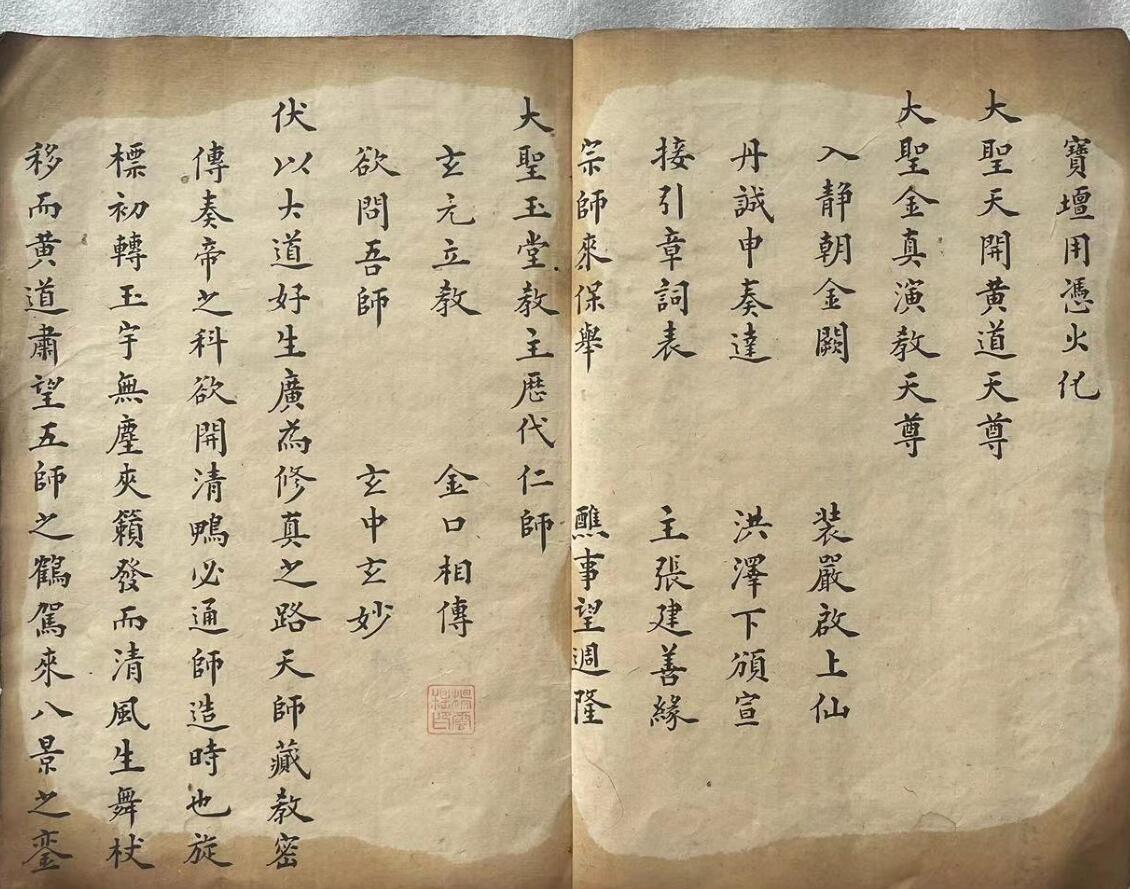 寶壇用憑火化
大聖天開黃道天尊
大聖金真演教天尊
入靜朝金闕　裝嚴啟上仙
丹誠申奏達　洪澤下頒宣
接引章詞表　主張建善緣
宗師來保舉　醮事望週隆
大聖玉堂教主歷代仁師
玄元立教　金口相傳
欲問吾師　玄中玄妙
伏以大道好生廣為修真之路天師藏教密
傳奏帝之科欲開清鴨必通師造時也旋
標初轉玉宇無塵夾籟發而清風生舞杖
移而黃道肅望五師之鶴駕來八景之鑾